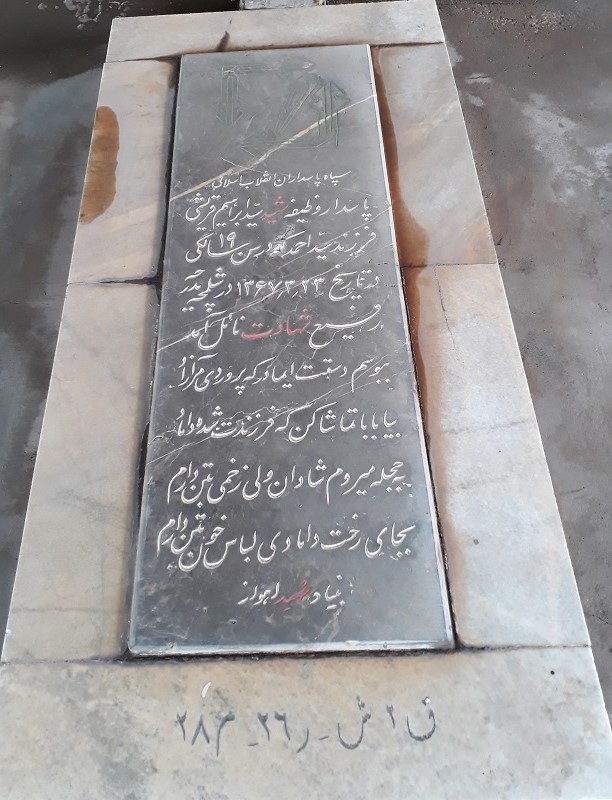 سپاه پاسداران انقلاب اسلامی
پاسدار وظیفه شهید سید ابراهیم قریشی
فرزند سید احمد که در سن ۱۹ سالگی
در تاریخ ۱۳۶۷٫۳٫۲۳ در شلمچه بدرجه
رفیع شهادت نائل آمد
ببوسم دستت ای مادر که پروردی مرا آزاد
بیا بابا تماشا کن که فرزندت شده داماد
به حجله میروم شادان ولی زخمی بتن دارم
بجای رخت دامادی لباس خون بتن دارم
بنیاد شهید اهواز
ق ۲ ش - ر ۲۶ - م ۲۸